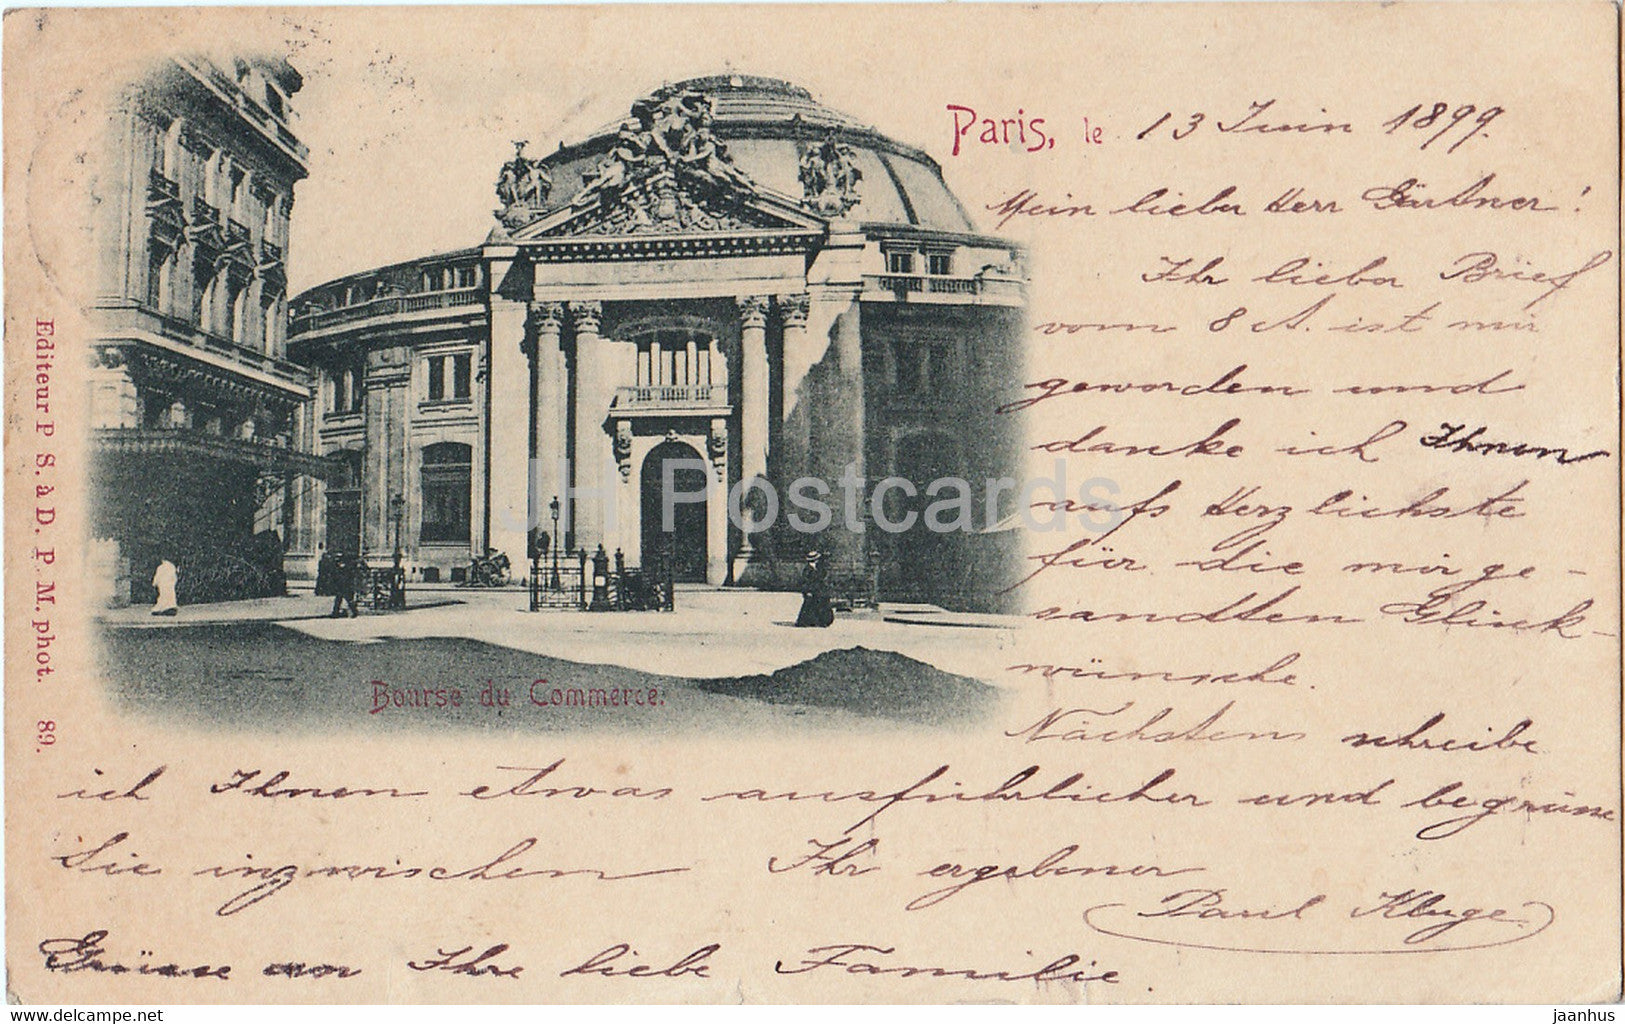 Paris, le 13 Juin 1899.
Mein lieber Herr Gärtner!
Ihr lieber Brief
vom 8 ct. ist mir
geworden und
danke ich Ihnen
aufs Herzlichste
für die mir ge-
sandten Glück-
wünsche.
Nächstens schreibe
ich Ihnen etwas ausführlicher und begrüsse
Sie inzwischen Ihr ergebener
Paul Kluge
Grüsse an Ihre liebe Familie.
Bourse du Commerce.
Editeur P. S. à D. P. M. phot. 89.
JH Postcards
delcampe.net
jaanhus